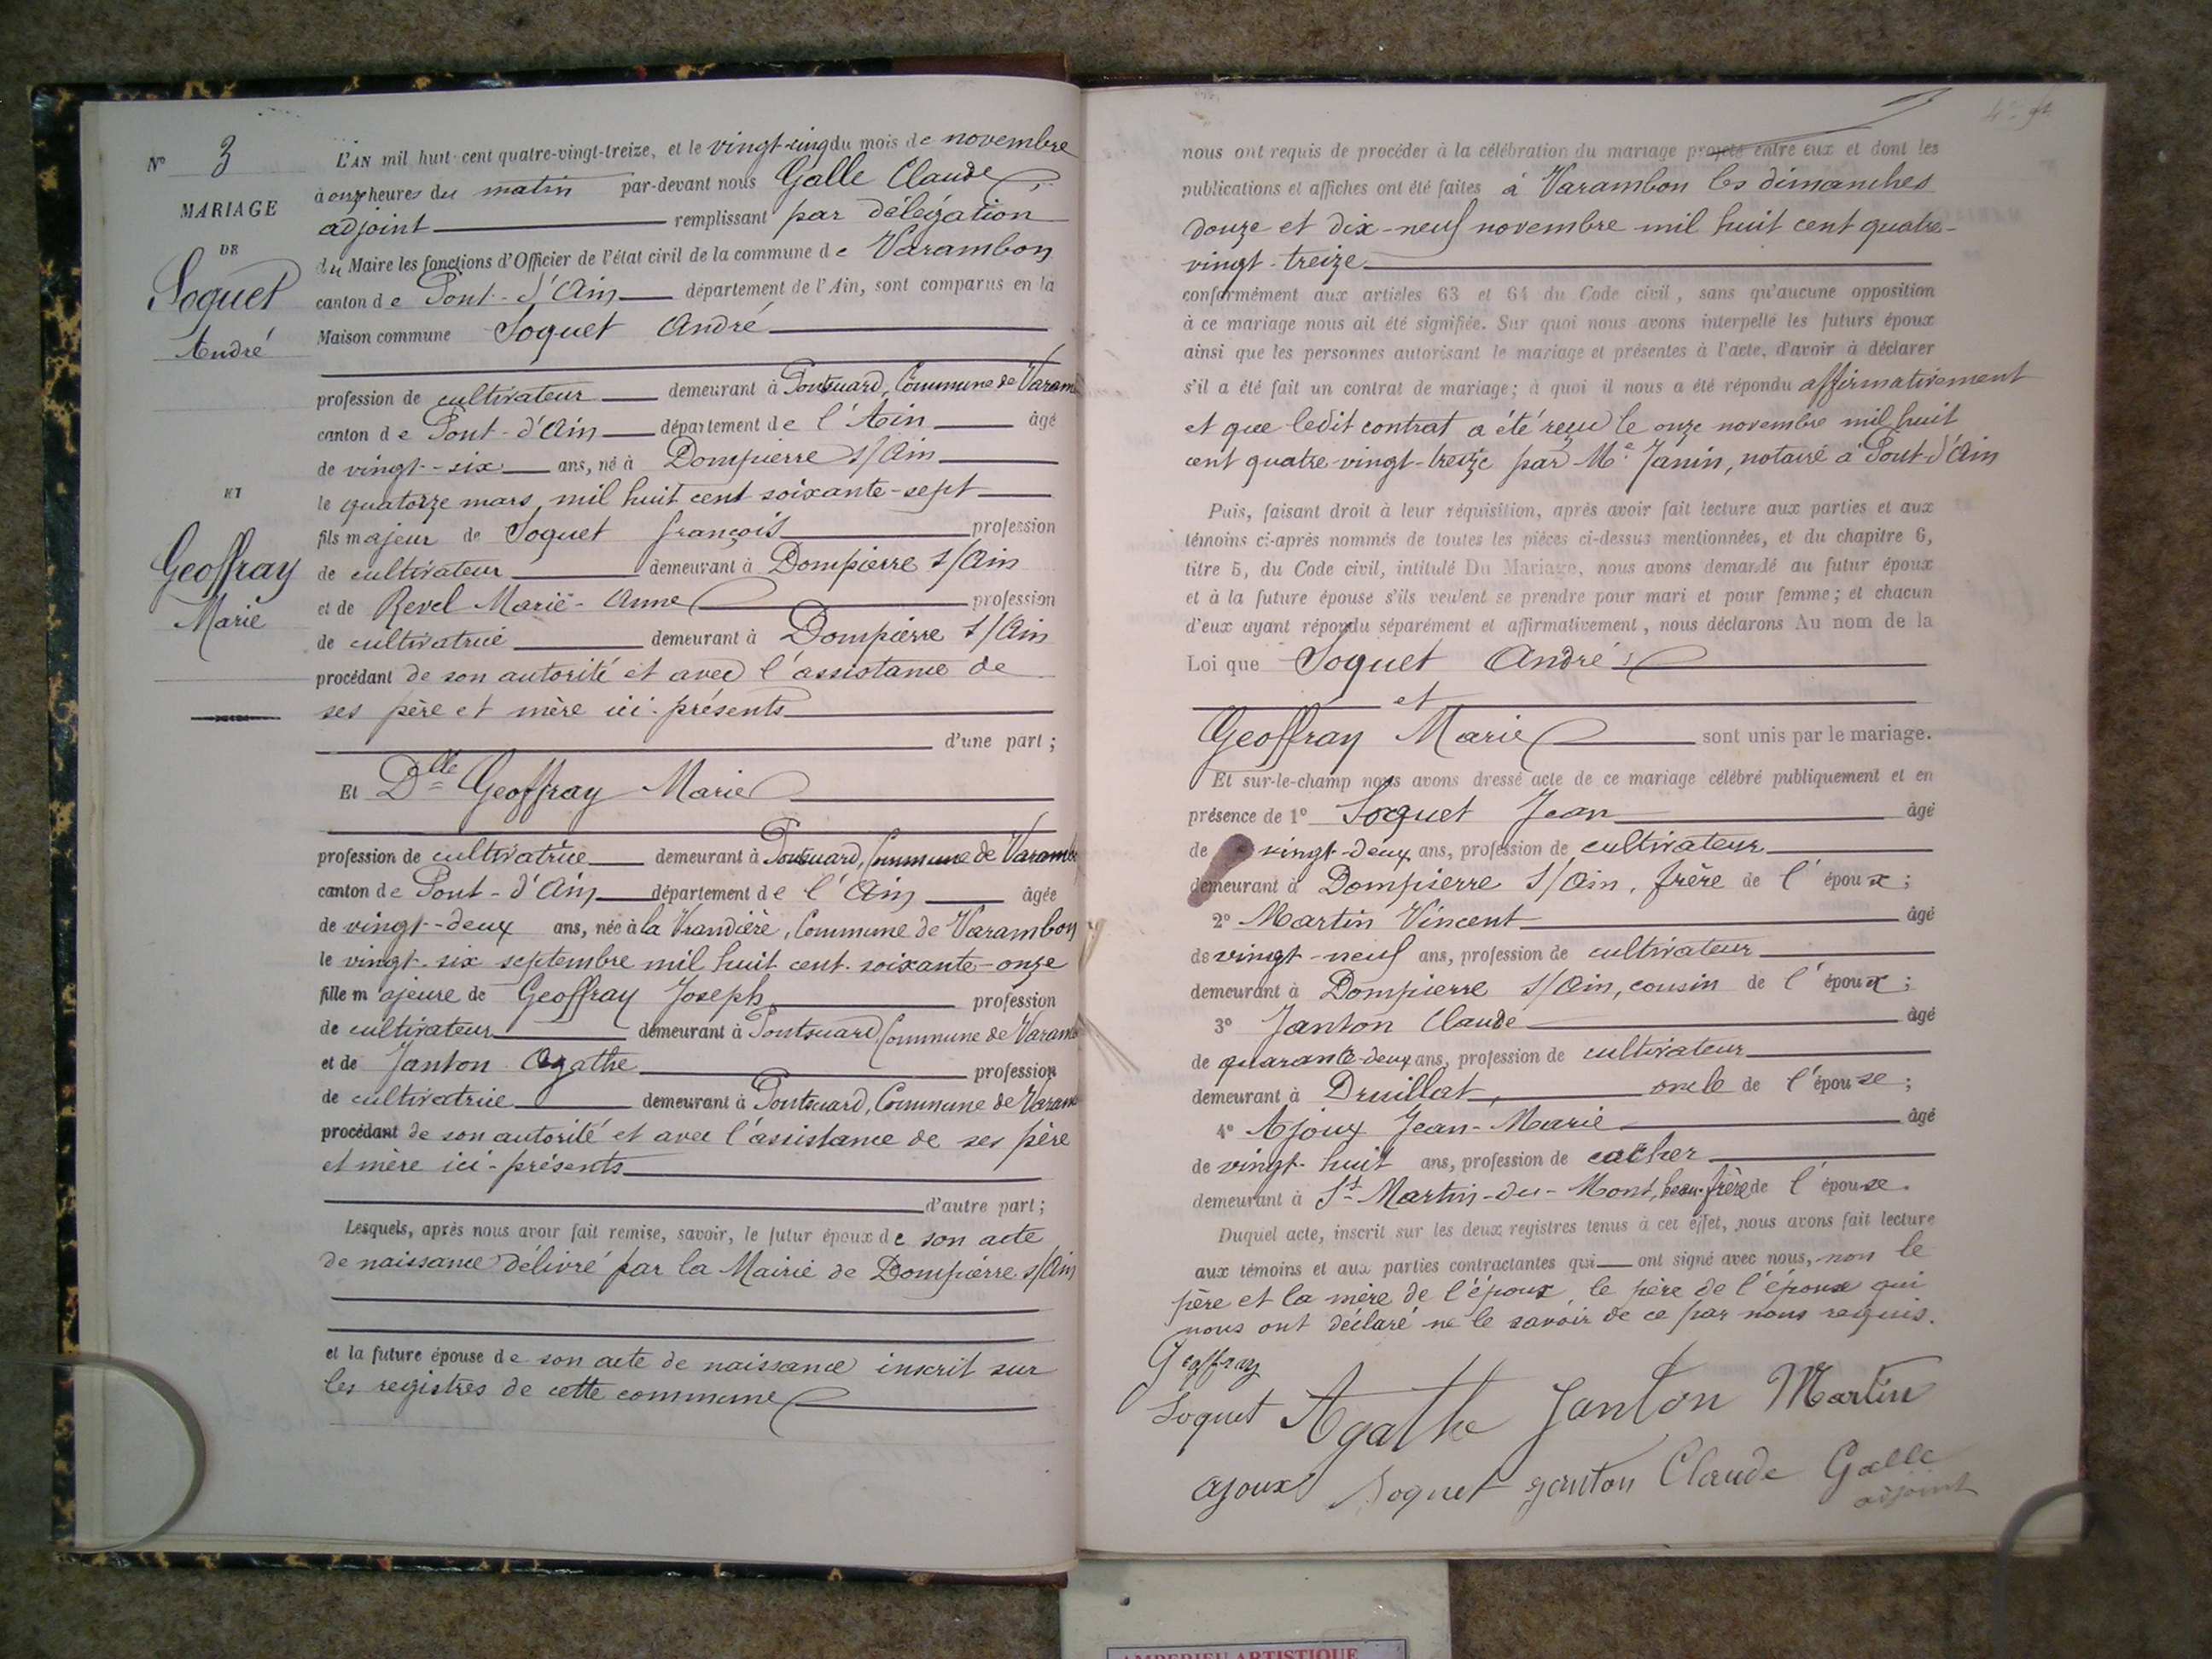 N° 3
MARIAGE
DE
Soquet
André
ET
Geoffray
Marie
L'AN mil huit cent quatre-vingt-treize, et le vingt-cinq du mois de novembre
à onze heures du matin par-devant nous Galle Claude
adjoint remplissant par délégation
du Maire les fonctions d'Officier de l'état civil de la commune de Varambon
canton de Pont-d'Ain département de l'Ain, sont comparus en la
Maison commune Soquet André
profession de cultivateur demeurant à Pontsuard, Commune de Varam
canton de Pont-d'Ain département de l'Ain âgé
de vingt-six ans, né à Dompierre s/Ain
le quatorze mars mil huit cent soixante-sept
fils majeur de Soquet françois profession
de cultivateur demeurant à Dompierre s/Ain
et de Revel Marie-Anne profession
de cultivatrice demeurant à Dompierre s/Ain
procédant de son autorité et avec l'assistance de
ses père et mère ici-présents
d'une part;
Et Dlle Geoffray Marie
profession de cultivatrice demeurant à Pontsuard, Commune de Varamb
canton de Pont-d'Ain département de l'Ain âgée
de vingt-deux ans, née à la Vrandière, Commune de Varambon
le vingt-six septembre mil huit cent soixante-onze
fille majeure de Geoffray Joseph profession
de cultivateur demeurant à Pontsuard, Commune de Varam
et de Janton Agathe profession
de cultivatrice demeurant à Pontsuard, Commune de Varam
procédant de son autorité et avec l'assistance de ses père
et mère ici-présents
d'autre part;
Lesquels, après nous avoir fait remise, savoir, le futur époux de son acte
de naissance délivré par la Mairie de Dompierre s/Ain
et la future épouse de son acte de naissance inscrit sur
les registres de cette commune
nous ont requis de procéder à la célébration du mariage projeté entre eux et dont les
publications et affiches ont été faites à Varambon les dimanches
douze et dix-neuf novembre mil huit cent quatre-
vingt-treize
conformément aux articles 63 et 64 du Code civil, sans qu'aucune opposition
à ce mariage nous ait été signifiée. Sur quoi nous avons interpellé les futurs époux
ainsi que les personnes autorisant le mariage et présentes à l'acte, d'avoir à déclarer
s'il a été fait un contrat de mariage; à quoi il nous a été répondu affirmativement
et que ledit contrat a été reçu le onze novembre mil huit
cent quatre-vingt-treize par Me Janin, notaire à Pont-d'Ain
Puis, faisant droit à leur réquisition, après avoir fait lecture aux parties et aux
témoins ci-après nommés de toutes les pièces ci-dessus mentionnées, et du chapitre 6,
titre 5, du Code civil, intitulé Du Mariage, nous avons demandé au futur époux
et à la future épouse s'ils veulent se prendre pour mari et pour femme; et chacun
d'eux ayant répondu séparément et affirmativement, nous déclarons Au nom de la
Loi que Soquet André
et
Geoffray Marie sont unis par le mariage.
Et sur-le-champ nous avons dressé acte de ce mariage célébré publiquement et en
présence de 1° Soquet Jean âgé
de vingt-deux ans, profession de cultivateur
demeurant à Dompierre s/Ain, frère de l'époux;
2° Martin Vincent âgé
de vingt-neuf ans, profession de cultivateur
demeurant à Dompierre s/Ain, cousin de l'époux;
3° Janton Claude âgé
de quarante-deux ans, profession de cultivateur
demeurant à Druillat, oncle de l'épouse;
4° Ajoux Jean-Marie âgé
de vingt-huit ans, profession de cocher
demeurant à St-Martin-du-Mont, beau-frère de l'épouse.
Duquel acte, inscrit sur les deux registres tenus à cet effet, nous avons fait lecture
aux témoins et aux parties contractantes qui ont signé avec nous, non le
père et la mère de l'époux, le père de l'épouse qui
nous ont déclaré ne le savoir de ce par nous requis.
Geoffray
Soquet Agathe Janton Martin
ajoux Soquet janton Claude Galle
adjoint
AMBERIEU ARTISTIQUE